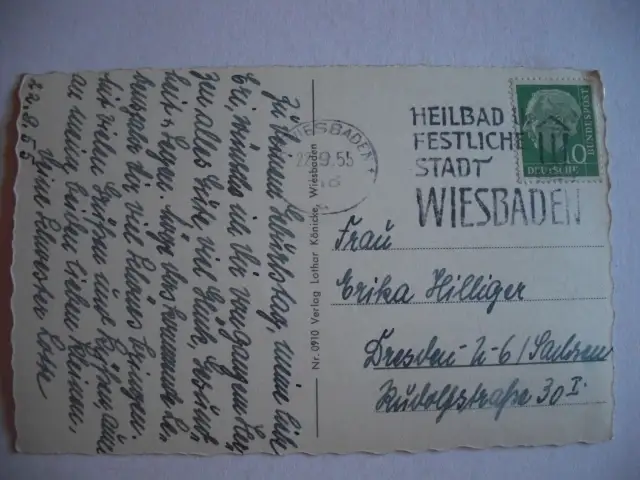 Zu Deinem Geburtstag, meine liebe
Eri, wünsche ich Dir von ganzem Her-
zen alles Gute, viel Glück, Gesund-
heit u. Segen. Möge das kommende Le-
bensjahr dir viel Schönes bringen.
Mit vielen Grüßen und Küssen,
an meine lieben lieben Kleinen,
Deine
22.9.55
Nr. 0910 Verlag Lothar Könicke, Wiesbaden
WIESBADEN
22.9.55
HEILBAD U
FESTLICHE
STADT
WIESBADEN
10
DEUTSCHE
BUNDESPOST
Frau
Erika Hilliger
Dresden-N-6/Sachsen
Rudolfstraße 30 I.